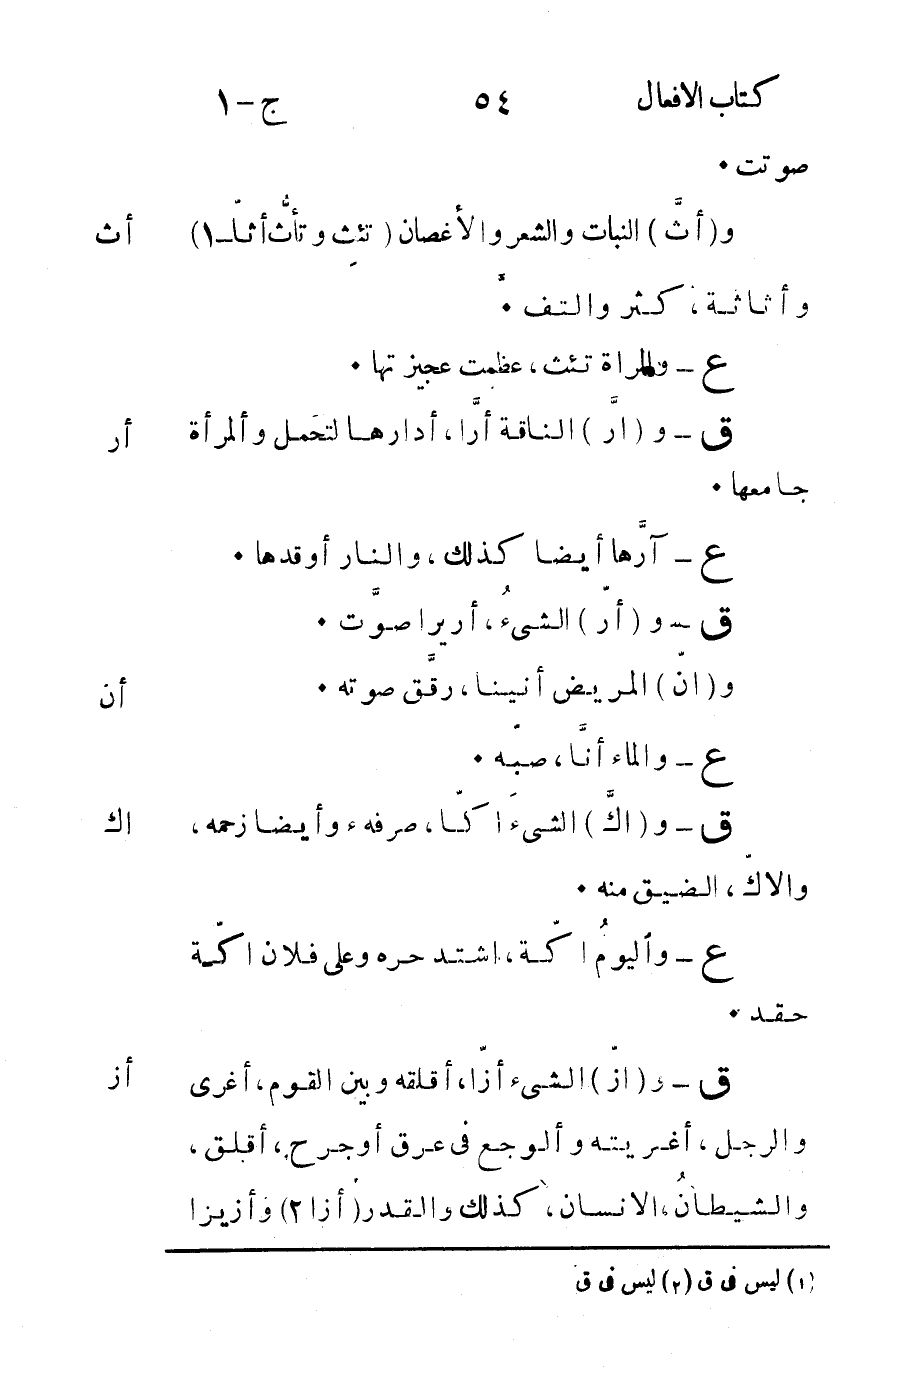 كتاب الافعال ٥٤ ج-١
صوتت •
و(أثَّ) النبات والشعر والأغصان (تئث وتأثُّ أثّا-١) أث
وأثاثة، كثر والتفَّ •
ع - والمراة تئث، عظمت عجيزتها •
ق - و (ارَّ) الناقة أرًّا، أدارها لتحمل وألمرأة أر
جامعها •
ع - آرَّها أيضا كذلك، والنار أوقدها •
ق - و (أرّ) الشىءُ، أريرا صوَّت •
و(انّ) المريض أنينا، رقَّق صوته • أن
ع - والماء أنًّا، صبّه •
ق - و(اكَّ) الشىءَ اكّا، صرفه وأيضا زحمه، اك
والاكّ، الضيق منه •
ع - وأليومُ اكّة، اشتد حره وعلى فلان اكّة
حقد •
ق - و(ازّ) الشىء أزّا، أقلقه وبين القوم، أغرى أز
والرجل، أغريته وألوجع فى عرق أوجرح، أقلق،
والشيطانُ، الانسان، كذلك والقدر (أزا ٢) وأزيزا
(١) ليس فى ق (٢) ليس فى ق